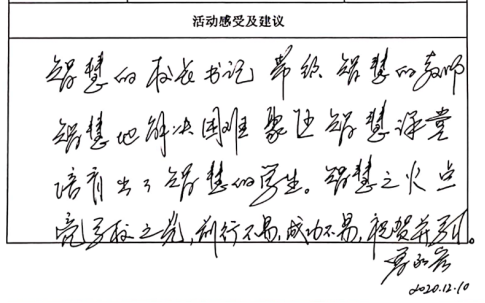 活动感受及建议
智慧的校长书记 带领 智慧的教师
智慧地解决困难 聚进 智慧课堂
培育出了智慧的学生。智慧之火点
亮学校之光,前行不易,成功不易,祝贺并
2020.12.10